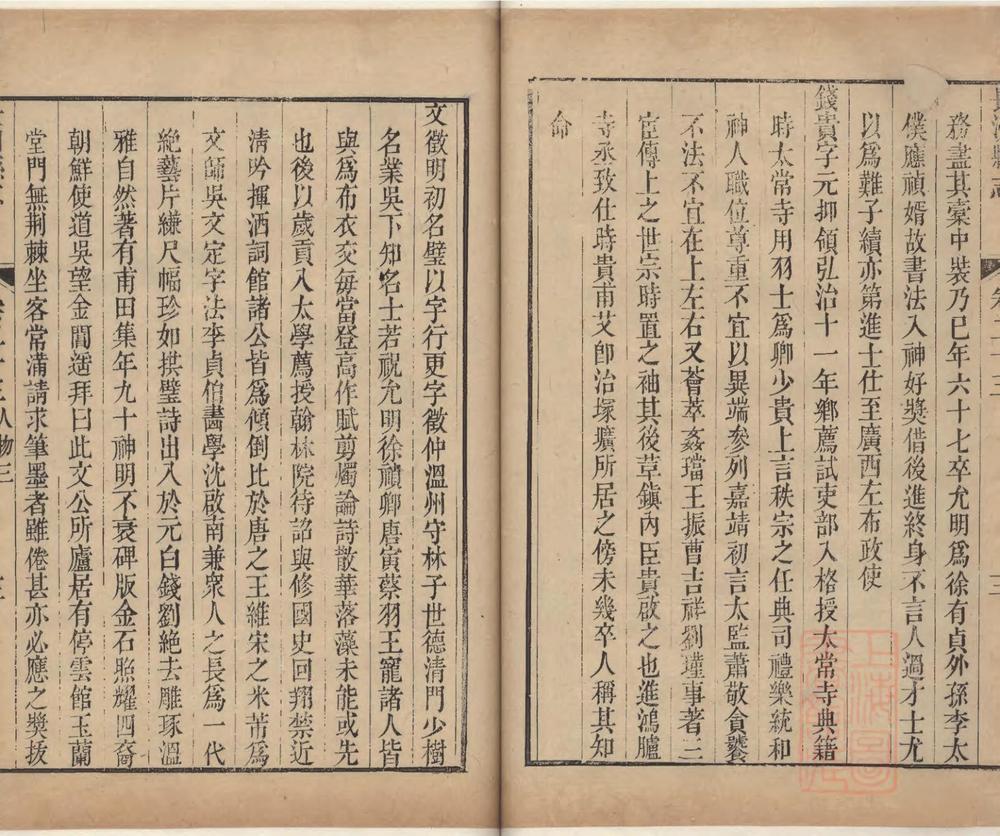 務盡其橐中裝乃已年六十七卒允明爲徐有貞外孫李太
僕應禎婿故書法入神好獎借後進終身不言人過才士尤
以爲難子續亦第進士仕至廣西左布政使
錢貴字元抑領弘治十一年鄉薦試吏部入格授太常寺典籍
時太常寺用羽士爲卿少貴上言秩宗之任典司禮樂統和
神人職位尊重不宜以異端參列嘉靖初言太監蕭敬貪饕
不法不宜在上左右又薈萃姦璫王振曹吉祥劉瑾事著三
宦傳上之世宗時置之袖其後革鎮內臣貴啟之也進鴻臚
寺丞致仕時貴甫艾卽治塚壙所居之傍未幾卒人稱其知
命
文徵明初名璧以字行更字徵仲溫州守林子世德清門少樹
名業吳下知名士若祝允明徐禎卿唐寅蔡羽王寵諸人皆
與爲布衣交每當登高作賦剪燭論詩散華落藻未能或先
也後以歲貢入太學薦授翰林院待詔與修國史回翔禁近
清吟揮洒詞館諸公皆爲傾倒比於唐之王維宋之米芾爲
文師吳文定字法李貞伯畫學沈啟南兼衆人之長爲一代
絶藝片縑尺幅珍如拱璧詩出入於元白錢劉絶去雕琢溫
雅自然著有甫田集年九十神明不衰碑版金石照耀四裔
朝鮮使道吳望金閶遥拜曰此文公所廬居有停雲館玉蘭
堂門無荆棘坐客常滿請求筆墨者雖倦甚亦必應之奬拔